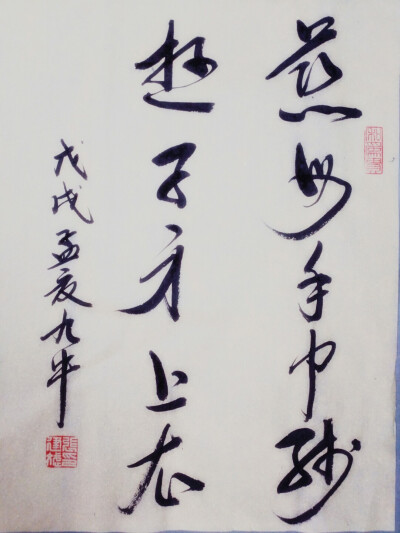 慈母手中线
遊子身上衣
戊戌孟夏九牛